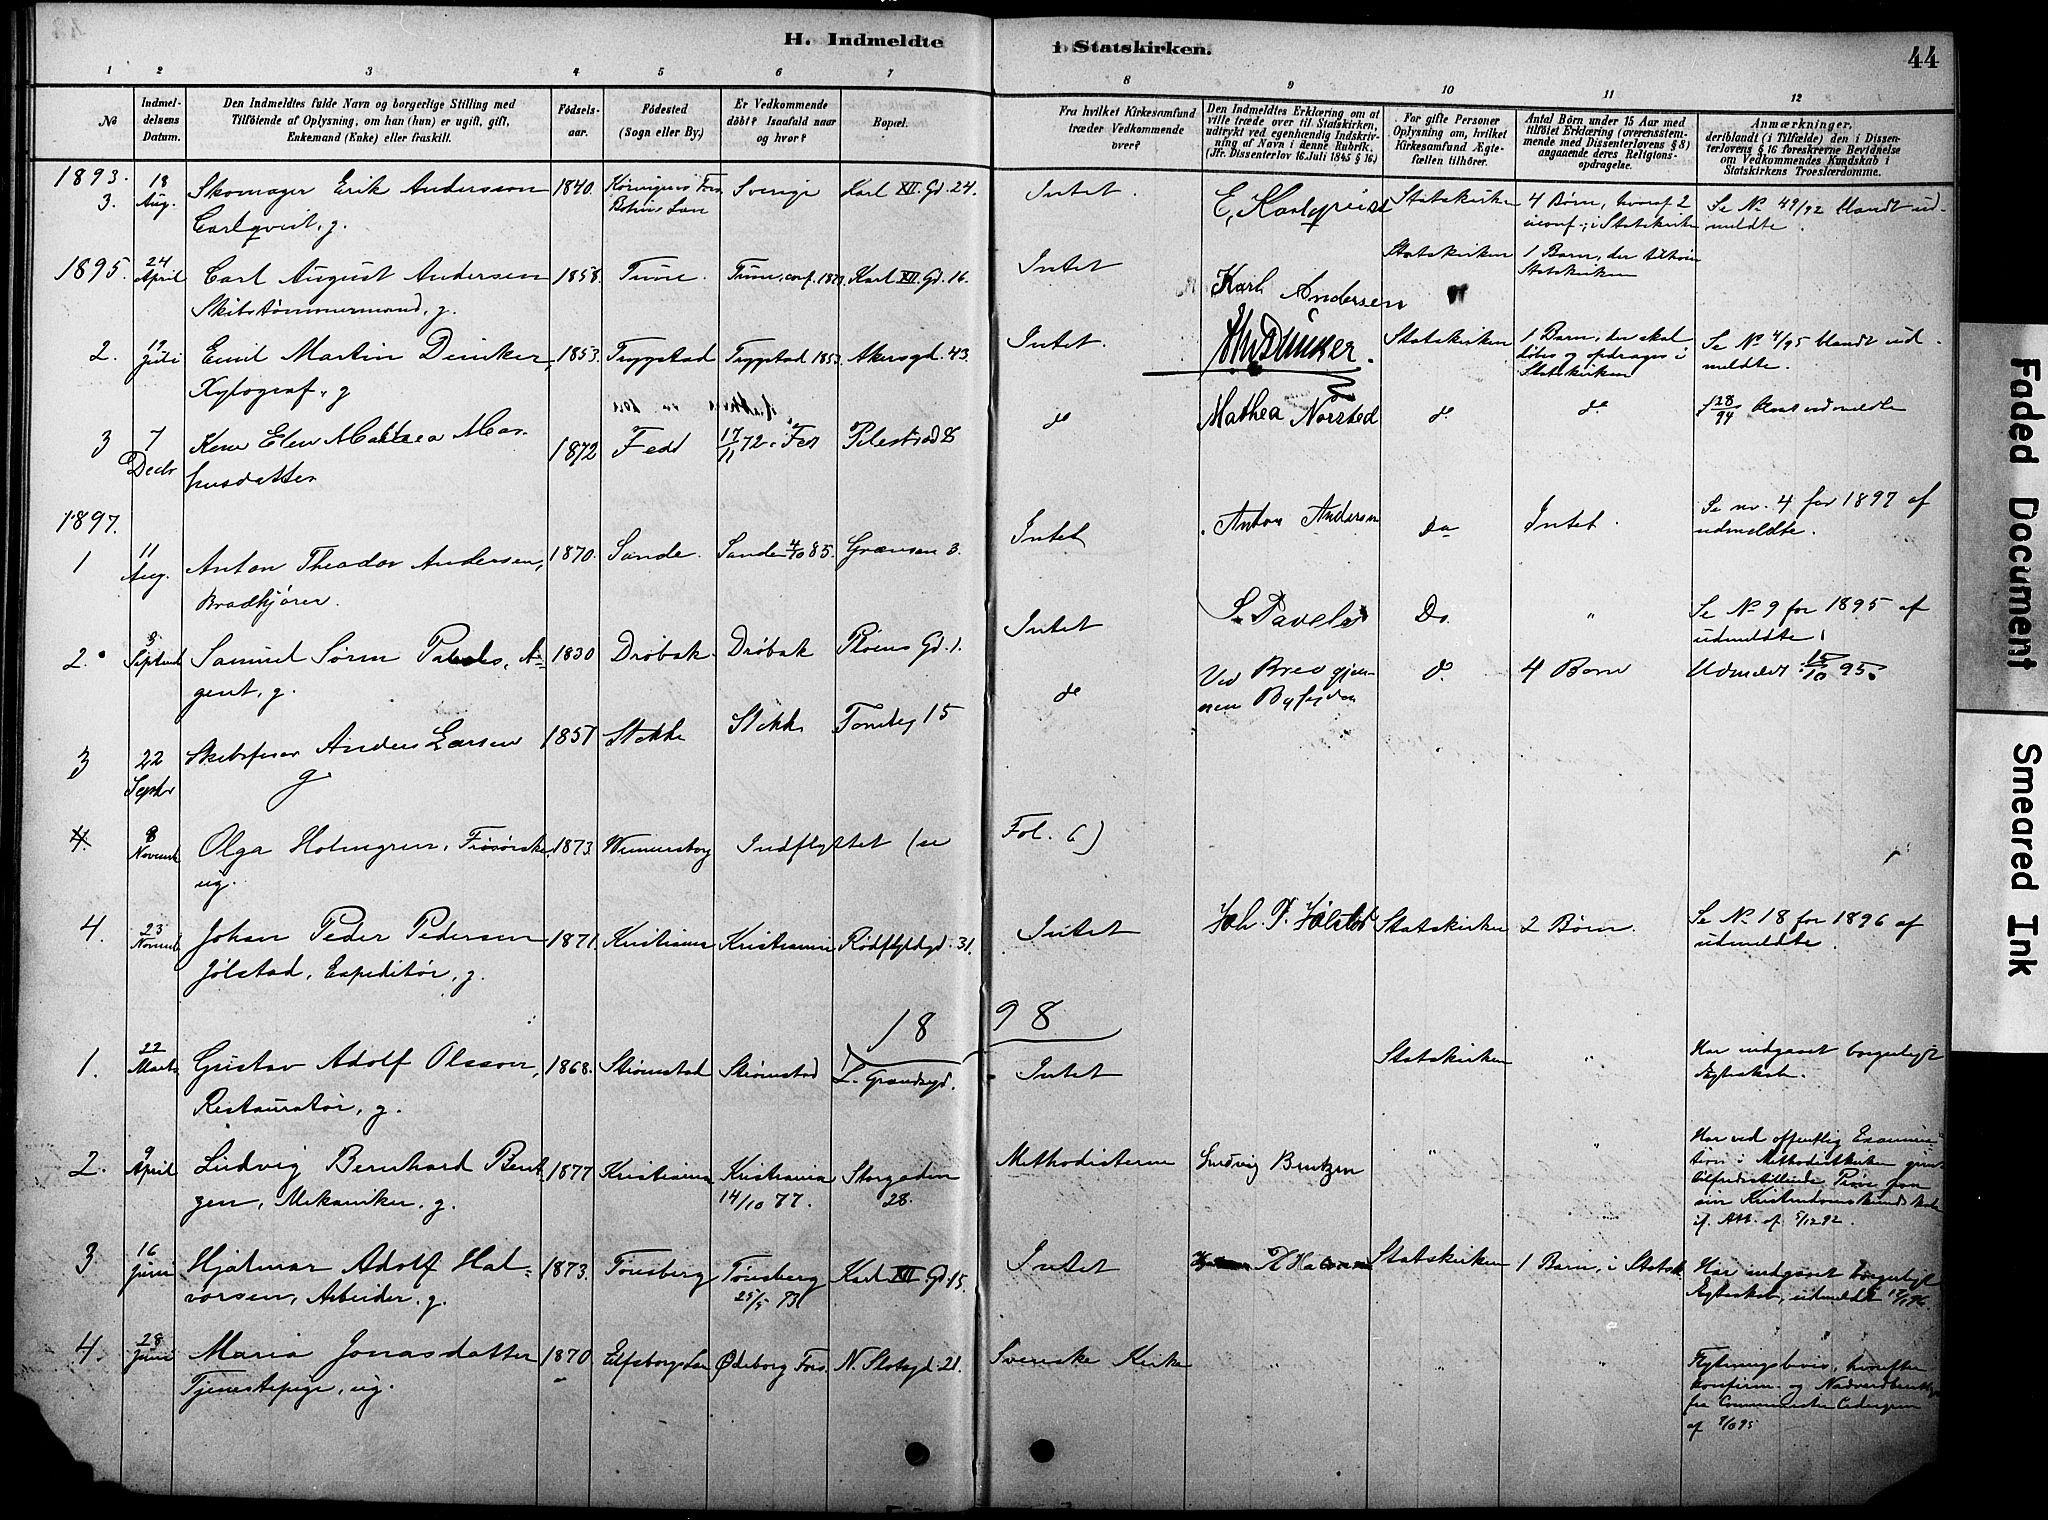 H. Indmeldte i Statskirken.
44
1 2 3 4 5 6 7 8 9 10 11 12
No
Indmel-
delsens
Datum.
Den Indmeldtes fulde Navn og borgerlige Stilling med
Tilföiende af Oplysning, om han (hun) er ugift, gift,
Enkemand (Enke) eller fraskilt.
Födsels-
aar.
Födested
(Sogn eller By.)
Er Vedkommende
döbt? Isaafald naar
og hvor?
Bopæl.
Fra hvilket Kirkesamfund
træder Vedkommende
over?
Den Indmeldtes Erklæring om at
ville træde over til Statskirken,
udtrykt ved egenhændig Indskriv-
ning af Navn i denne Rubrik.
(Jfr. Dissenterlov 16. Juli 1845 § 16.)
For gifte Personer
Oplysning om, hvilket
Kirkesamfund Ægte-
fællen tilhörer.
Antal Börn under 15 Aar med
tilföiet Erklæring (overensstem-
mende med Dissenterlovens § 8)
angaaende deres Religions-
opdragelse.
Anmærkninger,
deriblandt (i Tilfælde) den i Dissen-
terlovens § 16 foreskrevne Bevidnelse
om Vedkommendes Kundskab i
Statskirkens Troeslærdomme.
1893.
3. 18 Aug. Skomager Erik Andersson 1840. Sverige Karl XII. Gd. 24. Intet. E. Karlqvist Statskirken 4 Börn, hvoraf 2 Se No 49/92 blandt ud-
Carlqvist, g. i Statskirken meldte.
1895. 24 April Carl August Andersen 1858. Tune. Tune, conf. Karl XII. Gd. 16. Intet Karl Andersen Statskirken 1 Barn, der tilhører
Skibstømmermand, g. Statskirken
2. Juli Emil Martin Dunker, 1853. Trygstad Trygstad 1853. Akersgd. 43. Intet. Dunker. Statskirken 1 Barn, der skal Se No 4/95 blandt ud-
Xylograf, g døbes og opdrages i meldte.
Statskirken
3 7 Decbr Kone Elen Mathea Mar- 1872 Fedt 17/11 72 i Fet Pilestræd 8 do Mathea Norsted do do 28/94 udmeldte
husdatter
1897.
1 11 Aug. Anton Theodor Andersen, 1870. Sande. Sande 4/10 85. Grænsen 3. Intet Anton Andersen Do Intet. Se nr. 4 for 1897 af
Brødkjører. udmeldte.
2. Septemb Samuel Sørn Pavels, A- 1830 Drøbak Drøbak Pløens Gd. 1. Intet S. Pavels Do. " Se No 9 for 1895 af
gent, g. udmeldte.
3 22 Septbr Skibsfører Anders Larsen 1857 Stokke Stokke 15 do Ved Brev gjen- do 4 Børn Udmeldt 15/10 95.
g. nem Byfogden
4. 8 Novemb Olga Holmgren, 1873. Wenersborg Indflyttet (se Fol. 6)
ug.
4. 23 Novemb Johan Peder Pedersen 1871. Kristiania Kristiania Rødfyldgd. 31. Intet Joh. P. Jølstad Statskirken 2 Børn. Se No 18 for 1896 af
Jølstad, Expeditør, g. udmeldte.
1898
1. 22 Marts Gustav Adolf Olsson, 1868. Strømstad Strømstad L. Grændsegd. Intet Statskirken " Har indgaaet borgerligt
Restauratør, g. Ægteskab.
2. 9 April Ludvig Bernhard Bent- 1877 Kristiania Kristiania Storgaden Methodisterne Ludvig Bentzen " " Har ved offentlig Examina-
zen, Mekaniker, g. 14/10 77. 28. tion i Methodistkirken
tilfredsstillende Prøve paa
sin Kristendomskundskab
if. Att. af 5/12 92.
3 16 Juni Hjalmar Adolf Hal- 1873. Tønsberg Tønsberg Karl XII. Gd. 15. Intet Statskirken 1 Barn, i Statsk. Har indgaaet borgerligt
vorsen, Arbeider, g. 25/5 73 Ægteskab, udmeldt
4. 28 Juni Maria Jonasdatter 1870 Elfsborgs Län Ødeborg Fors. N. Slotsgd. 21. Svenske Kirke " " Flytningsbevis, hvorefter
Tjenestepige, ug. konfirm. og
fra Cedergren
af
Faded Document
Smeared Ink